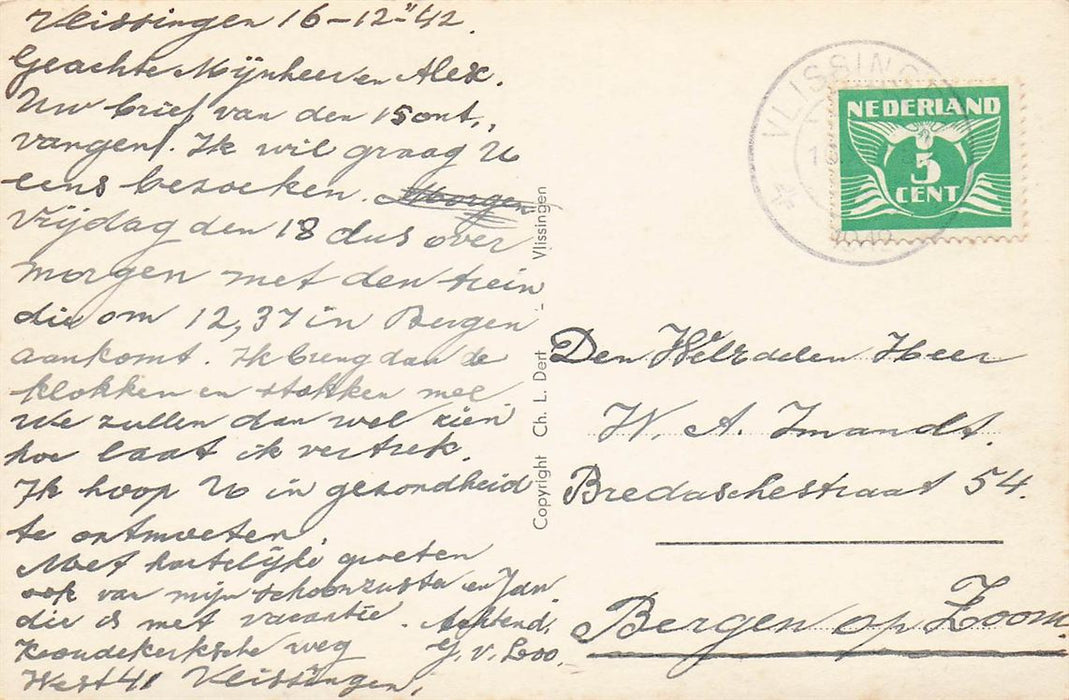 Vlissingen 16-12-"42.
Geachte Mijnheer en Alex.
Uw brief van den 15 ont,,
vangen. Ik wil graag U
eens bezoeken. Morgen
Vrijdag den 18 dus over
morgen met den trein
die om 12,37 in Bergen
aankomt. Ik breng dan de
klokken en stokken mee.
We zullen dan wel zien
hoe laat ik vertrek.
Ik hoop U in gezondheid
te ontmoeten.
Met hartelijke groeten
ook van mijn schoonzuster en Jan.
die is met vacantie. Achtend,
Koudekerksche weg G. v. Loo.
West 41 Vlissingen.
Copyright Ch. L. Dert - Vlissingen
VLISSINGEN
NEDERLAND
5
CENT
Den WelEdelen Heer
W. A. Imandt.
Bredaschestraat 54.
Bergen op Zoom